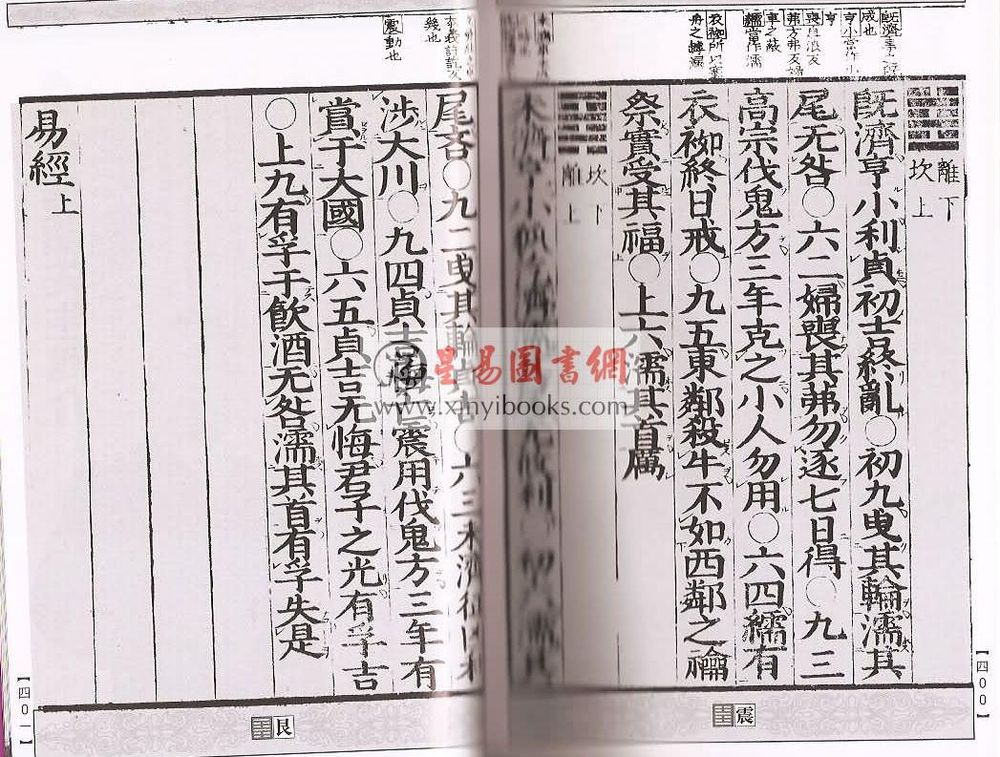 既濟
成也
亨
喪
茀
車之蔽
繻當作濡
衣袽所以塞
舟之罅漏
離下
坎上
既濟亨小利貞初吉終亂○初九曳其輪濡其
尾无咎○六二婦喪其茀勿逐七日得○九三
高宗伐鬼方三年克之小人勿用○六四繻有
衣袽終日戒○九五東鄰殺牛不如西鄰之禴
祭實受其福○上六濡其首厲
【四〇〇】
震
幾也
震動也
坎下
離上
未濟亨小
尾吝○九二曳其輪貞吉○六三未濟征凶利
涉大川○九四貞吉悔亡震用伐鬼方三年有
賞于大國○六五貞吉无悔君子之光有孚吉
○上九有孚于飲酒无咎濡其首有孚失是
易經上
【四〇一】
艮
星易圖書網
www.xinyibooks.com